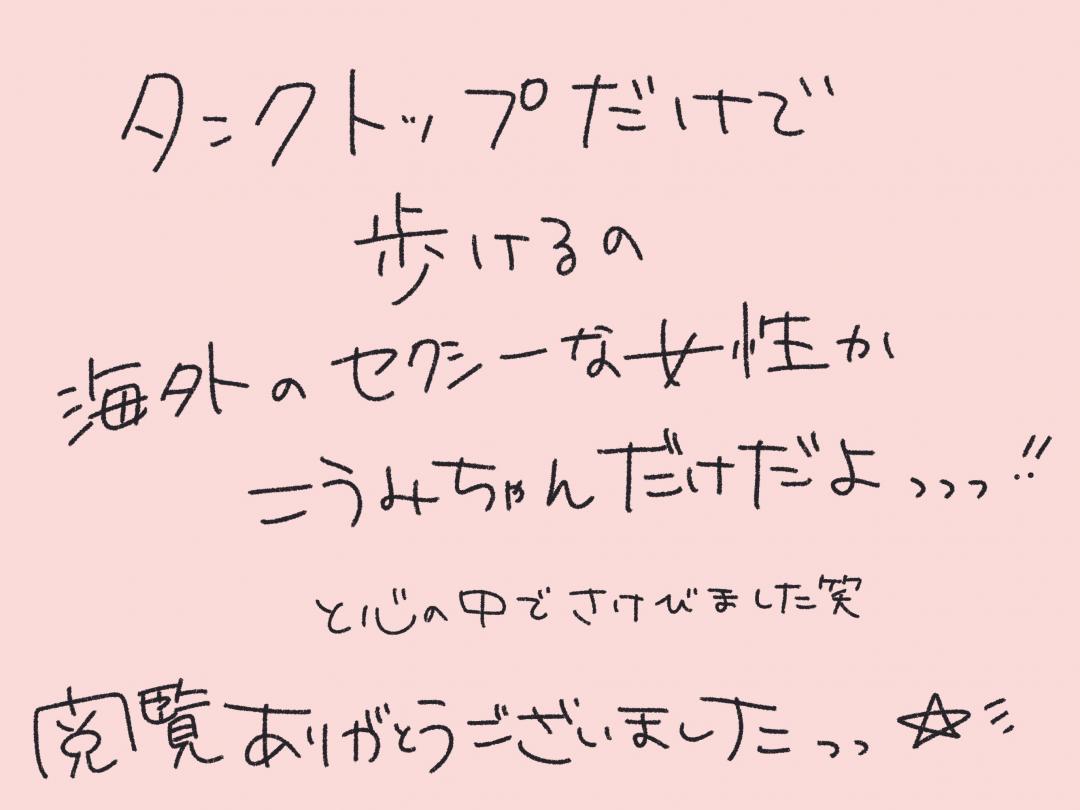 タンクトップだけで
歩けるの
海外のセクシーな女性か
こうみちゃんだけだよっっっ!!
と心の中でさけびました笑
閲覧ありがとうございましたっっ☆ミ